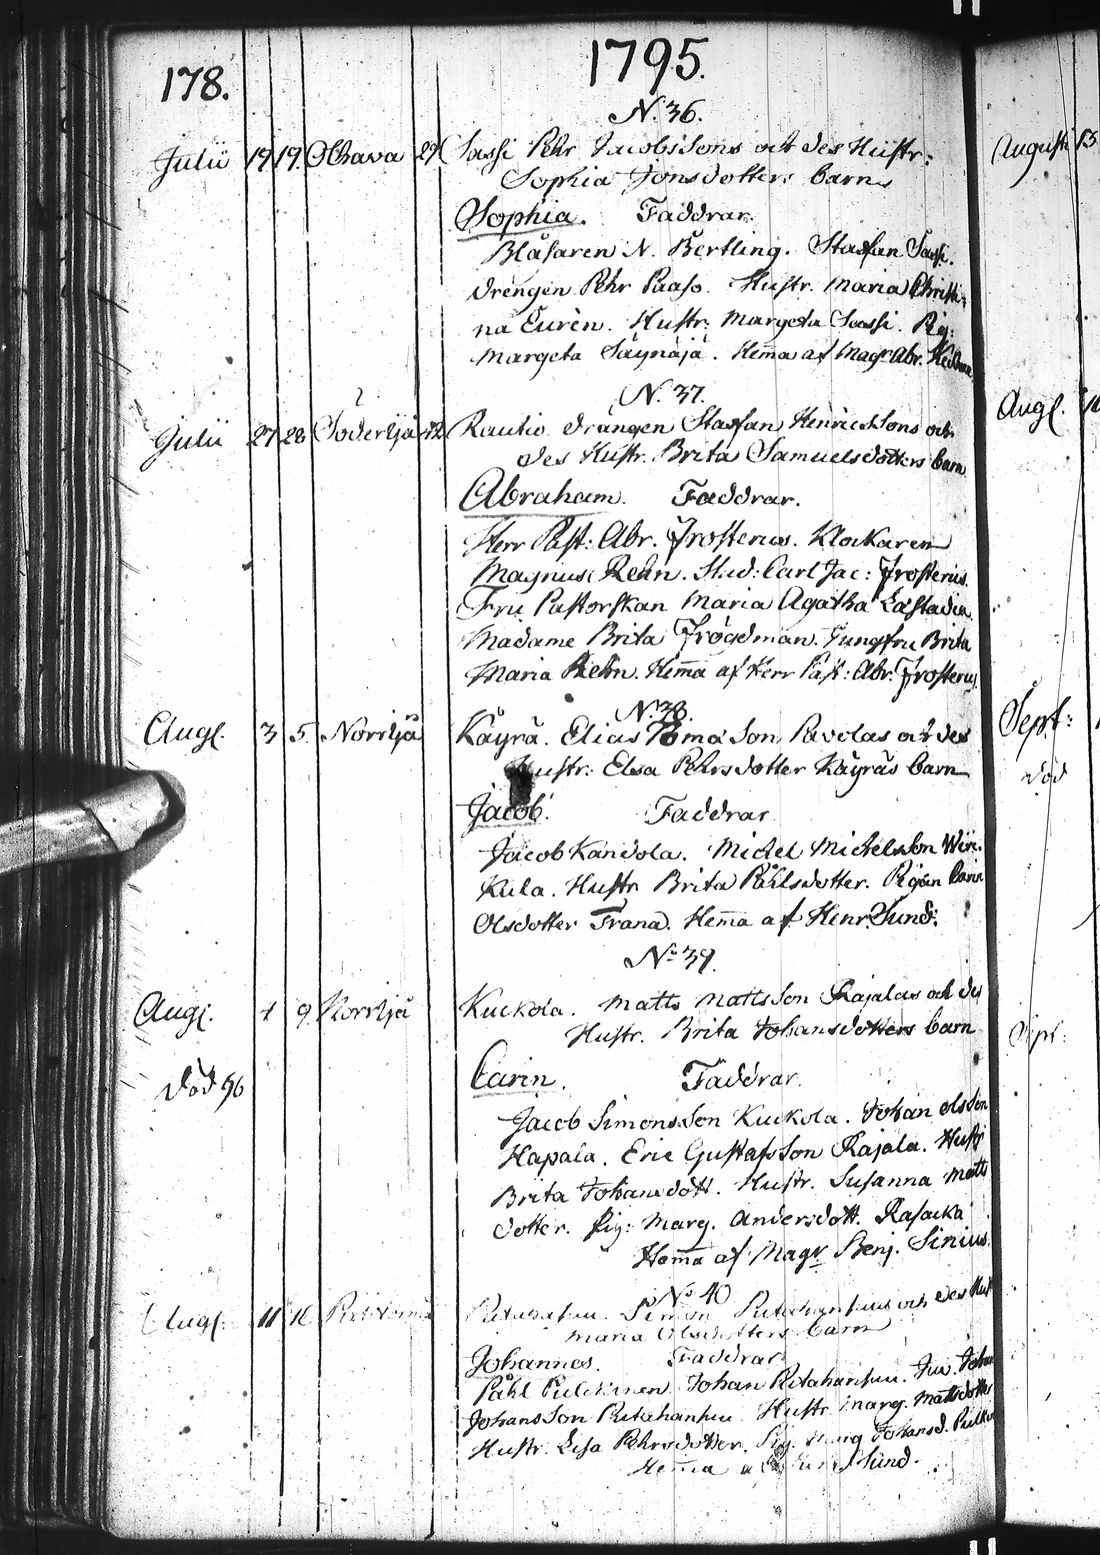 178.
1795.
N. 36.
Julii 19 19. Olhava 29 Sassi Pehr Jacobssons och des Hustr:
Sophia Jonsdotters barn
Sophia. Faddrar.
Blåsaren N. Bertling. Staffan Sassi.
drengen Pehr Paaso. Hustr. Maria Christi-
na Eurén. Hustr. Margeta Sassi. Pig:
Margeta Säynäjä. Hema af Magr Abr.
N. 37.
Julii 27 28 Söderijå 42 Rautio drängen Staffan Henricssons och
des Hustr. Brita Samuelsdotters barn
Abraham. Faddrar.
Herr Past: Abr. Frosterus. Klockaren
Magnus Rehn. Stud: Carl Jac: Frosterus.
Fru Pastorskan Maria Agatha Læstadia
Madame Brita Frögdman. Jungfru Brita
Maria Rehn. Hema af Herr Past: Abr. Frosterus.
N. 38.
Augl. 3 5. Norrijå Käyrä. Elias son Pavolas och des
Hustr. Elsa Pehrsdotter Käyräs barn
Jacob. Faddrar
Jacob Kandola. Michel Michelsson Wiri
Kula. Hustr Brita Påhlsdotter. Pigan Carin
Olsdotter Frana. Hema af Henr. Sund:
No 39.
Augl. 9 Norrijå Kuckola. Matts Mattsson Rajalas och des
Hustr. Brita Johansdotters barn
död 96
Carin. Faddrar.
Jacob Simonsson Kuckola. Johan Olsson
Hapala. Eric Gustafsson Rajala. Hustr
Brita Johansdott. Hustr. Susanna Matts
dotter. Pig: Marg. Andersdott.
Hema af Magr Benj. Sirius.
No 40
Augl. 11 16 Ritahanhu. Simon Ritahanhus och des Hust
Maria Olsdotters barn
Johannes. Faddrar
Påhl Pulckinen Johan Ritahanhu. Joh
Johansson Ritahanhu Hustr Marg. Mattsdotter
Hustr. Lisa Pehrsdotter. Pig. Marg Johansd.
Hema af Sund.
Augusti 13
Augl.
Sept:
död
Sept: